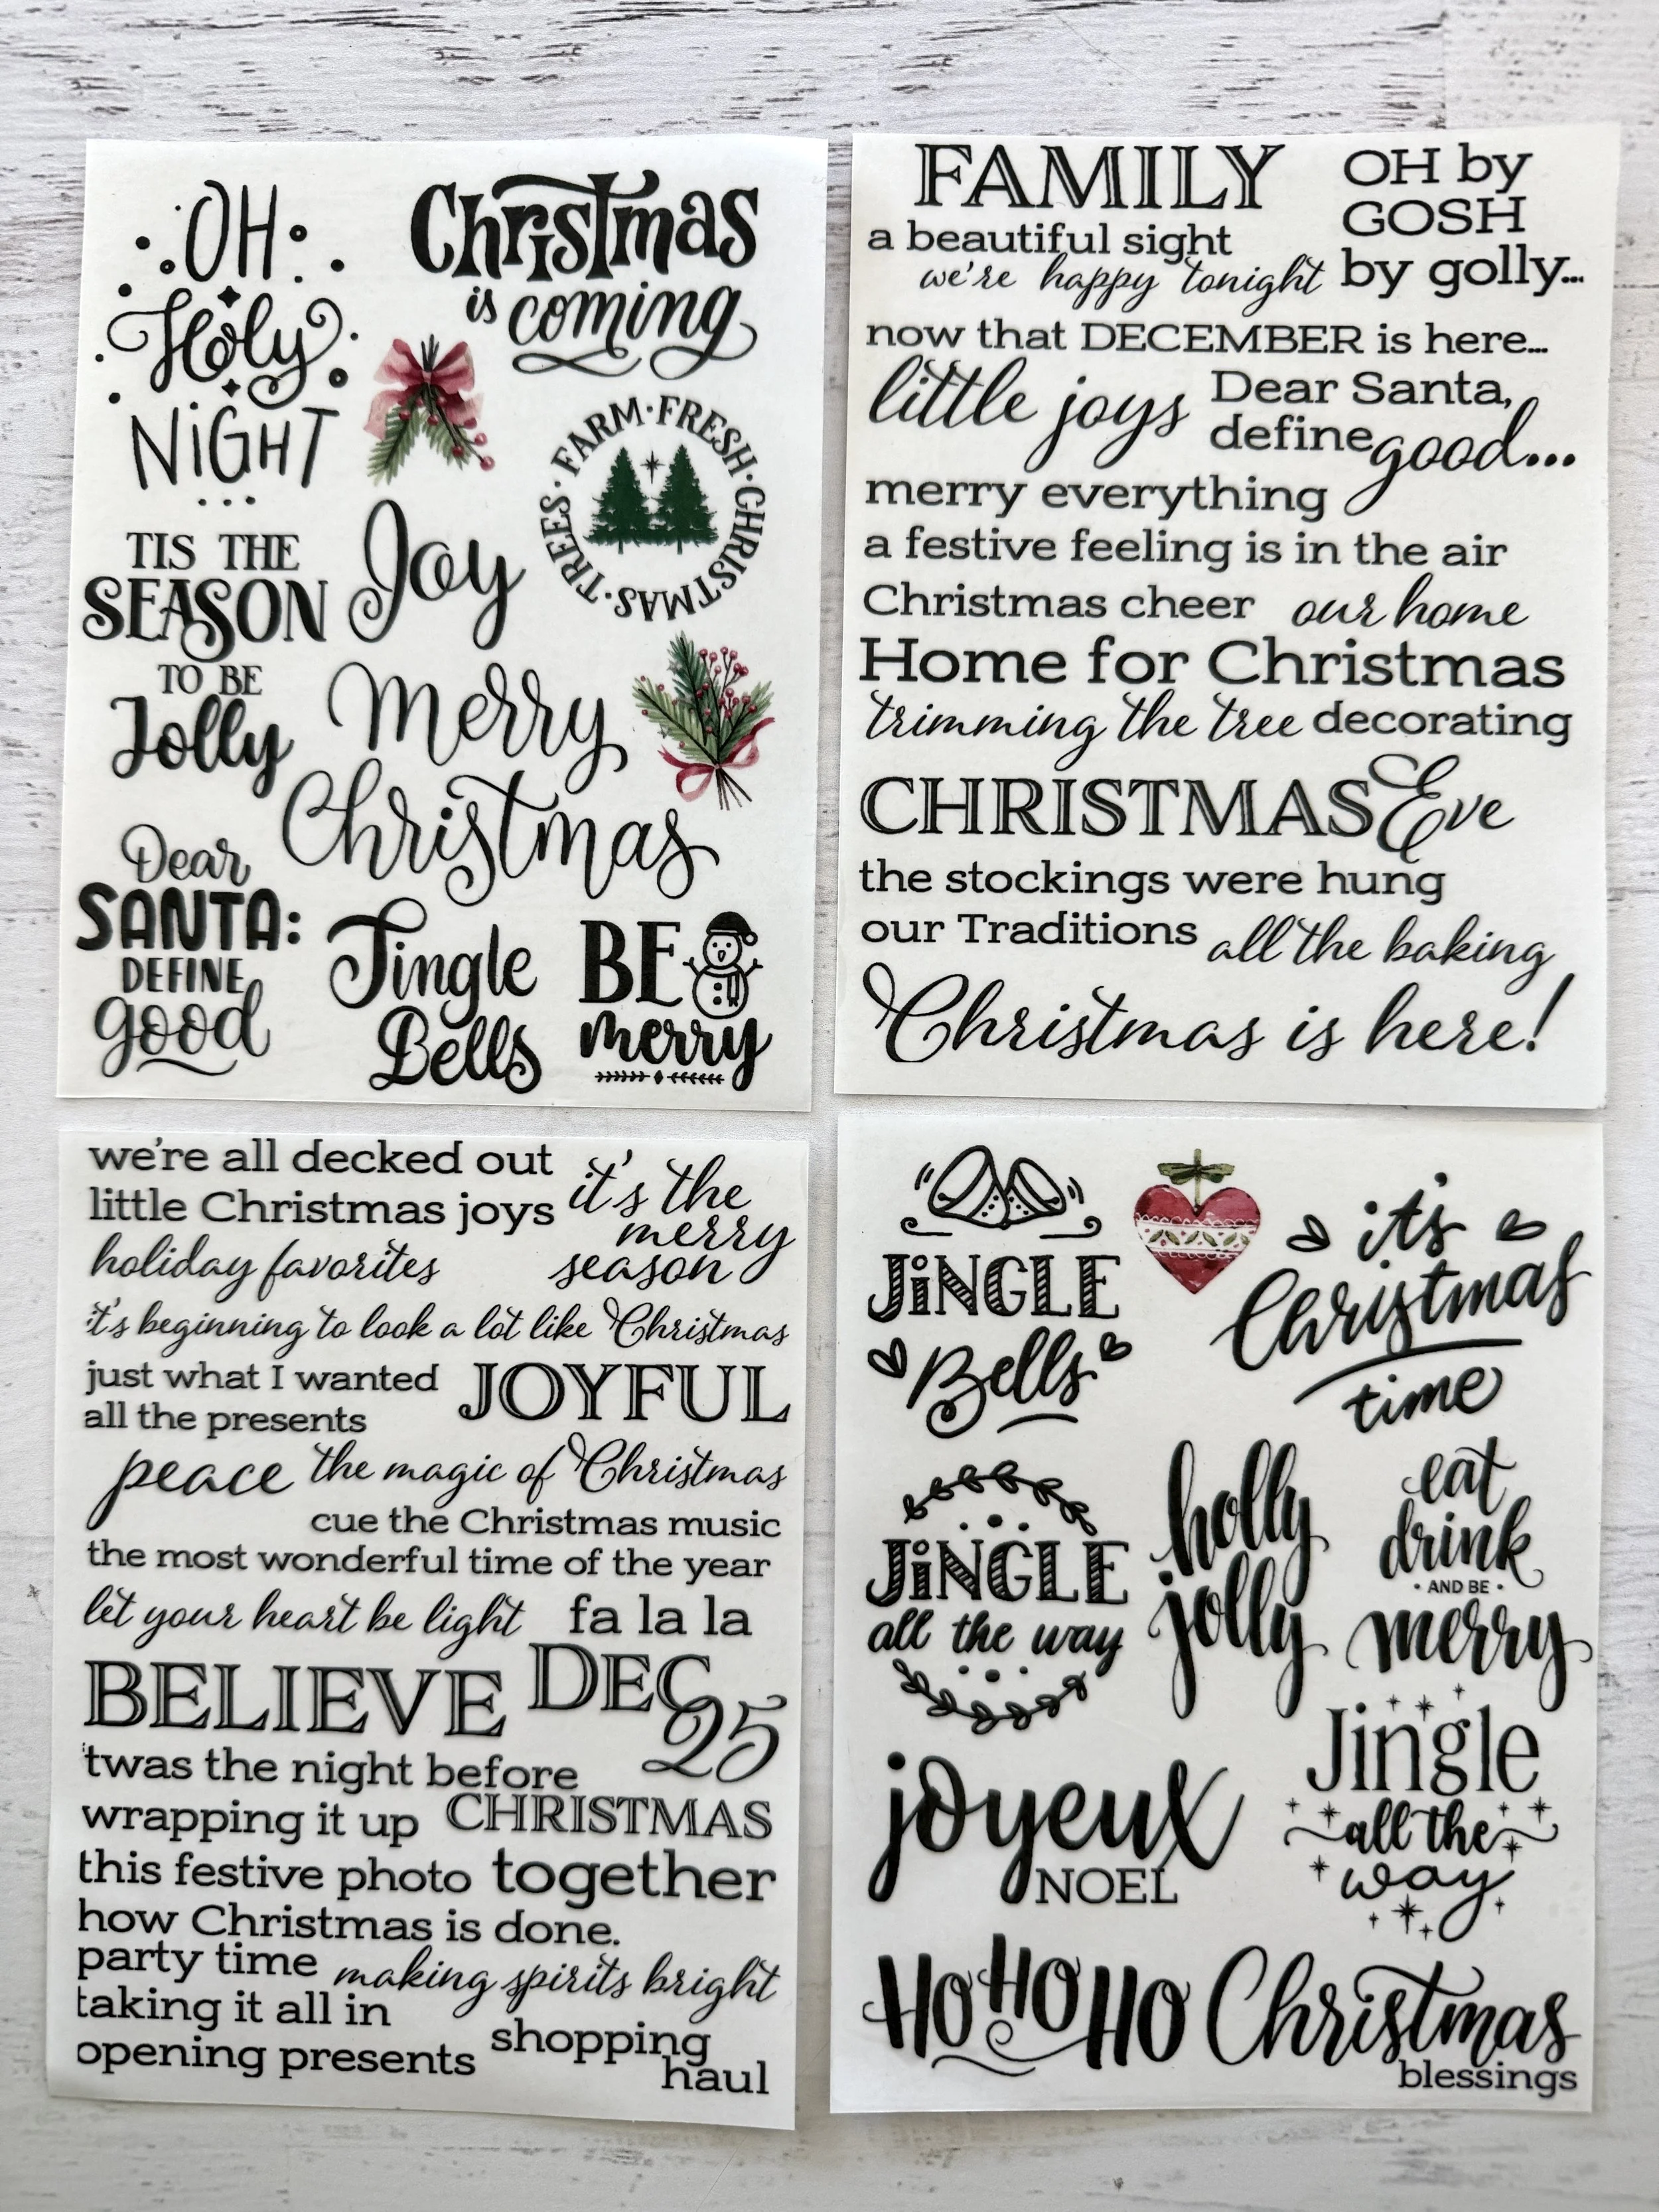 OH
Holy
NiGHT
...
Christmas
is coming
FARM·FRESH·CHRISTMAS·TREES·
TIS THE
SEASON
TO BE
Jolly
Joy
Merry
Christmas
Dear
SANTA:
DEFINE
good
Jingle
Bells
BE
merry
FAMILY
a beautiful sight
we're happy tonight
OH by
GOSH
by golly...
now that DECEMBER is here...
little joys
Dear Santa,
define good...
merry everything
a festive feeling is in the air
Christmas cheer our home
Home for Christmas
trimming the tree decorating
CHRISTMAS Eve
the stockings were hung
our Traditions all the baking
Christmas is here!
we're all decked out
little Christmas joys
it's the
merry
season
holiday favorites
it's beginning to look a lot like Christmas
just what I wanted
all the presents
JOYFUL
peace the magic of Christmas
cue the Christmas music
the most wonderful time of the year
let your heart be light fa la la
BELIEVE DEC
25
'twas the night before
wrapping it up CHRISTMAS
this festive photo together
how Christmas is done.
party time making spirits bright
taking it all in
opening presents
shopping
haul
JiNGLE
Bells
it's
Christmas
time
JiNGLE
all the way
holly
jolly
eat
drink
• AND BE •
merry
joyeux
NOEL
Jingle
all the
way
HO HO HO
Christmas
blessings